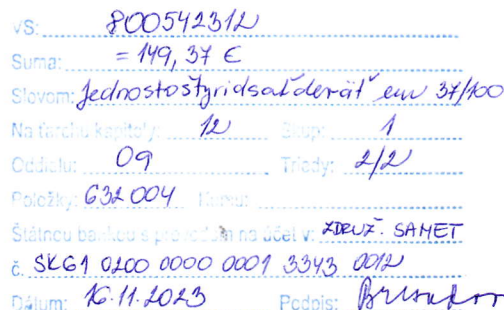 VS: 800542312
Suma: = 149,37 €
Slovom: Jednostoštyridsaťdeväť eur 37/100
Na ťarchu kapitoly: 12 Skup: 1
Oddielu: 09 Triedy: 2/2
Položky: 632 004
Štátnou bankou s prevodom na účet v: ZDRUŽ. SAMET
č. SK61 0200 0000 0001 3343 0012
Dátum: 16.11.2023 Podpis: